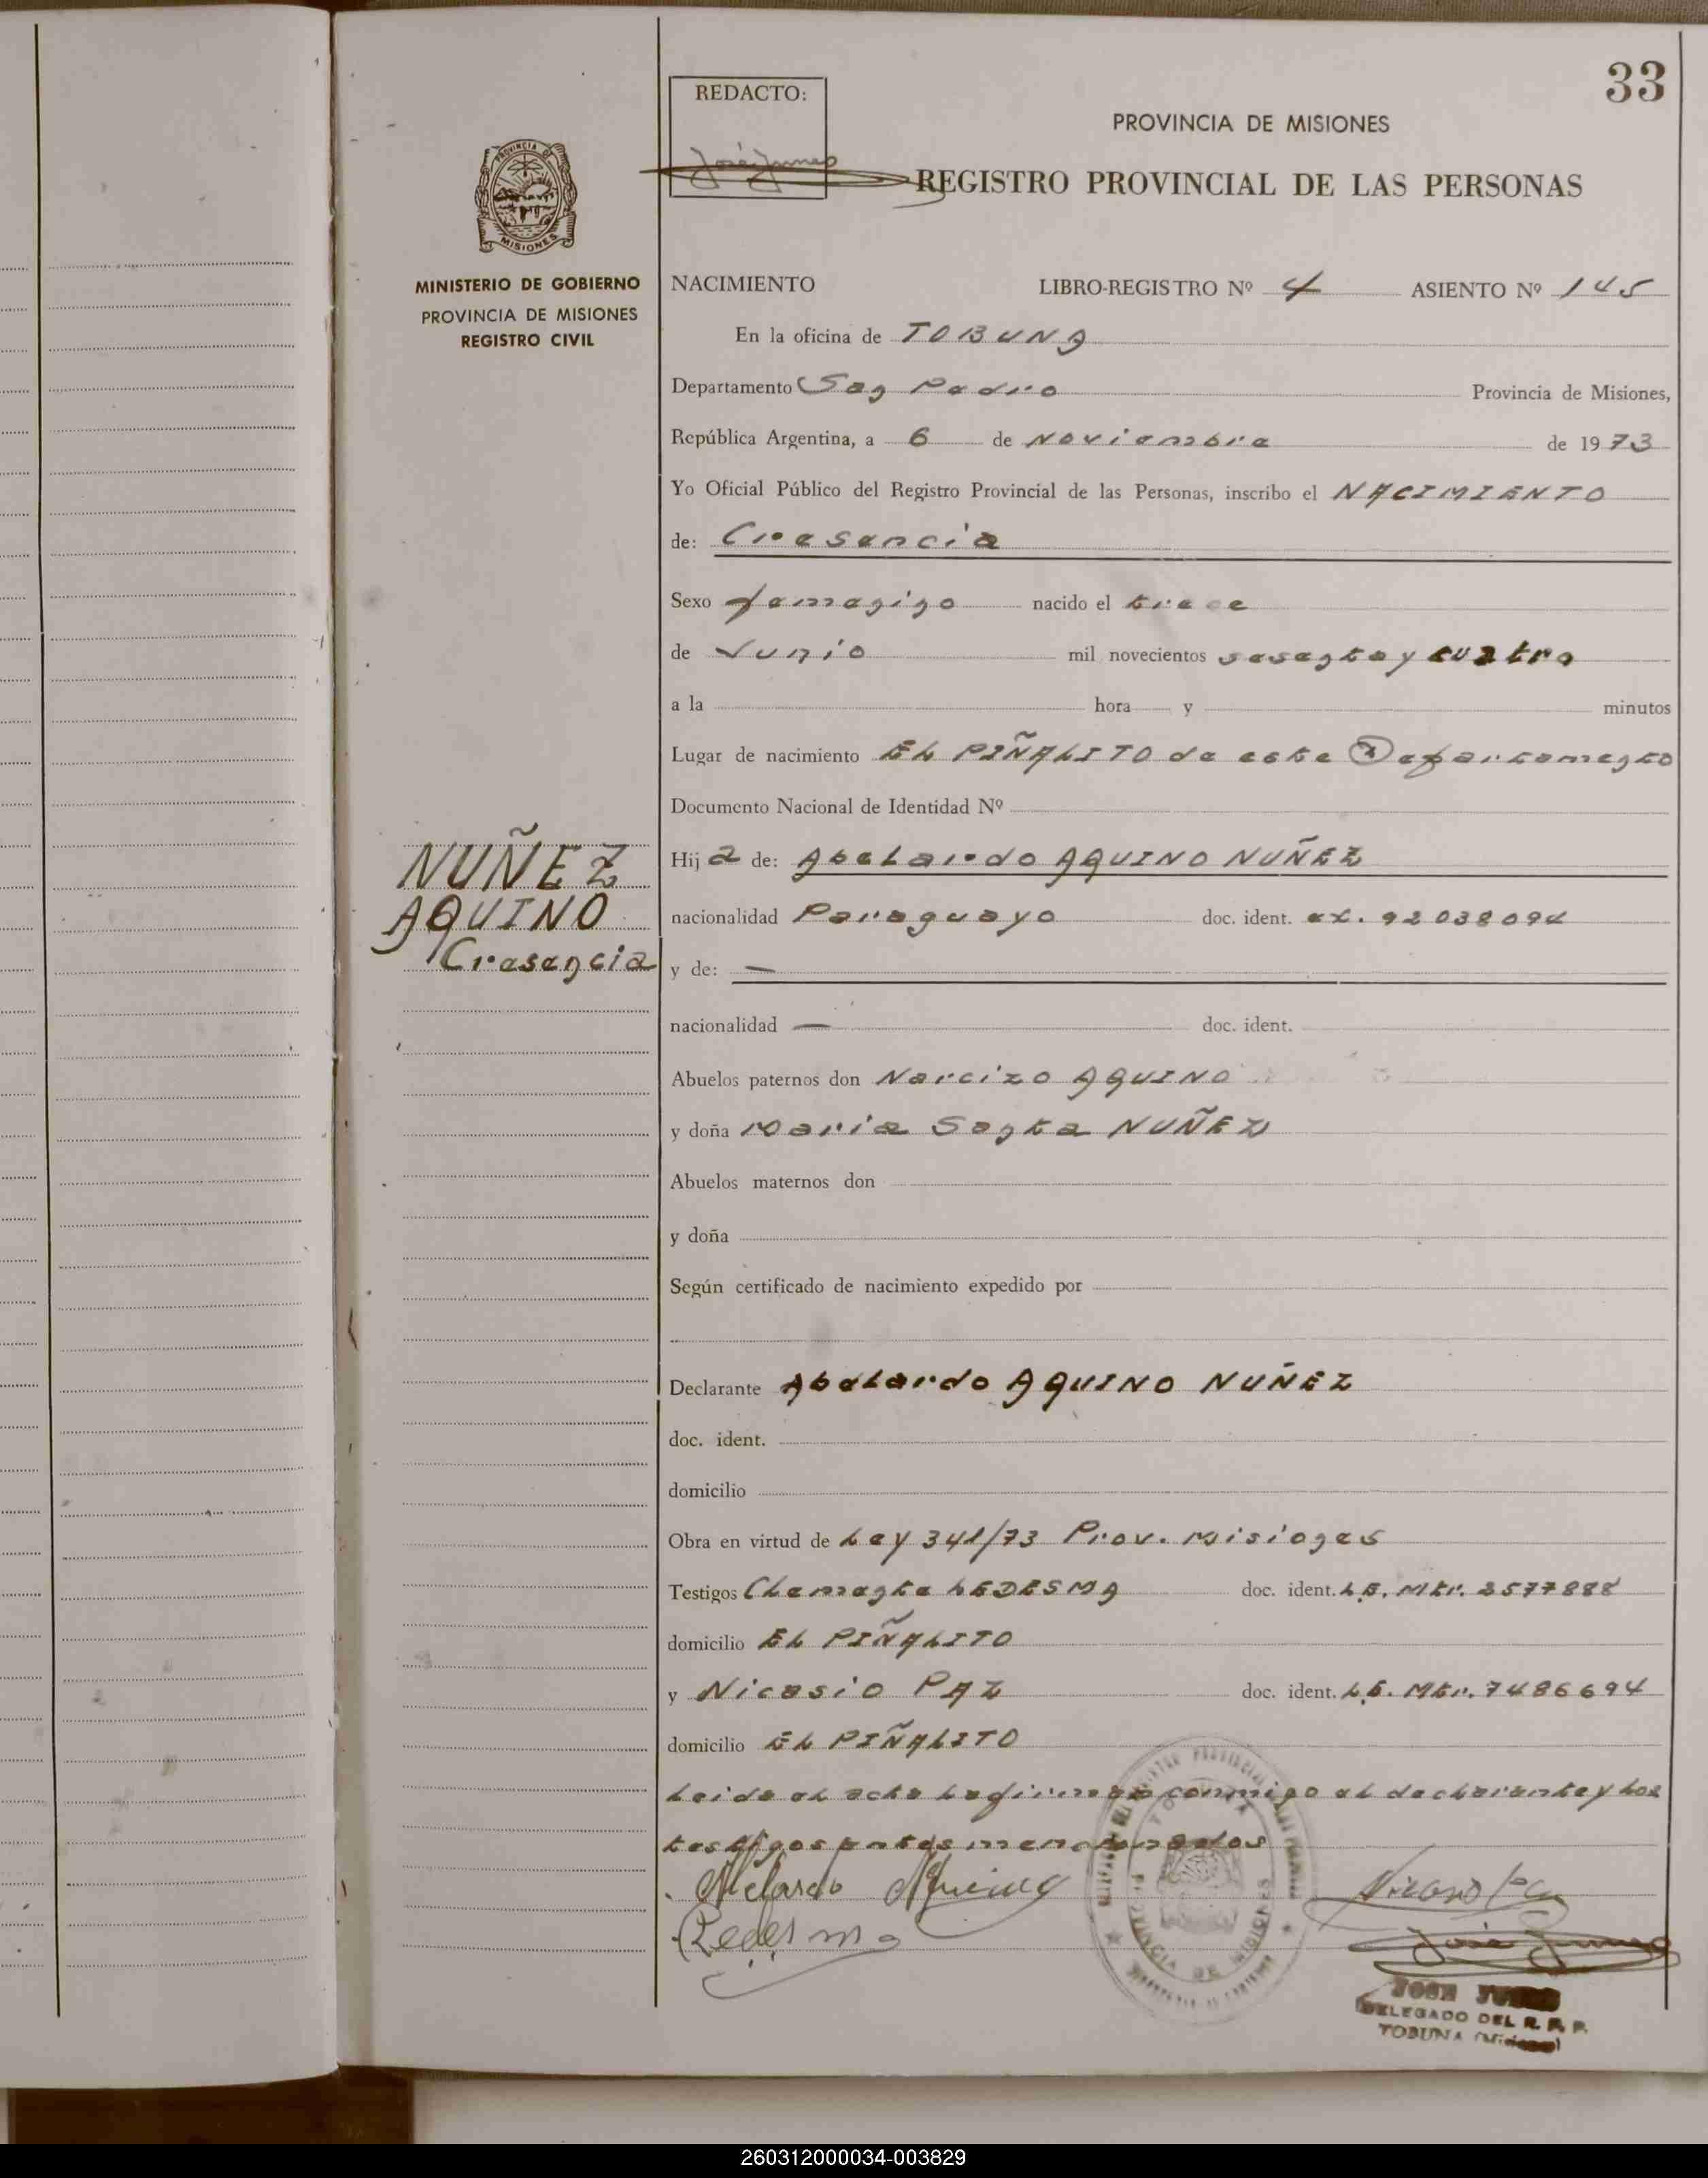 33
REDACTO:
PROVINCIA DE MISIONES
REGISTRO PROVINCIAL DE LAS PERSONAS
PROVINCIA DE
MISIONES
MINISTERIO DE GOBIERNO
PROVINCIA DE MISIONES
REGISTRO CIVIL
NACIMIENTO LIBRO-REGISTRO Nº 4 ASIENTO Nº 145
En la oficina de TOBUNA
Departamento San Pedro Provincia de Misiones,
República Argentina, a 6 de Noviembre de 1973
Yo Oficial Público del Registro Provincial de las Personas, inscribo el NACIMIENTO
de: Cresencia
Sexo femenino nacido el trece
de Junio mil novecientos sesenta y cuatro
a la hora y minutos
Lugar de nacimiento EL PIÑALITO de este Departamento
Documento Nacional de Identidad Nº
NUÑEZ
AQUINO
Cresencia
Hija de: Abelardo AQUINO NUÑEZ
nacionalidad Paraguayo doc. ident. ex. 92038094
y de: —
nacionalidad — doc. ident.
Abuelos paternos don Narcizo AQUINO
y doña Maria Santa NUÑEZ
Abuelos maternos don
y doña
Según certificado de nacimiento expedido por
Declarante Abelardo AQUINO NUÑEZ
doc. ident.
domicilio
Obra en virtud de Ley 341/73 Prov. Misiones
Testigos Clemente LEDESMA doc. ident. L.E. Mtr. 3577888
domicilio EL PIÑALITO
y Nicasio PAZ doc. ident. L.E. Mtr. 7486694
domicilio EL PIÑALITO
Leida el acta la firman conmigo el declarante y los
testigos antes mencionados
Abelardo Aquino
Nicasio Paz
Ledesma
PROVINCIA DE MISIONES
JOSE
DELEGADO DEL R. P. P.
TOBUNA (Misiones)
260312000034-003829